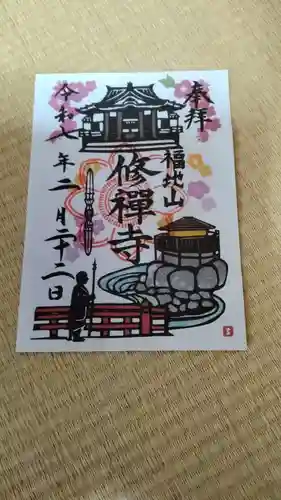 奉拝
福地山
修禅寺
令和七年二月二十二日